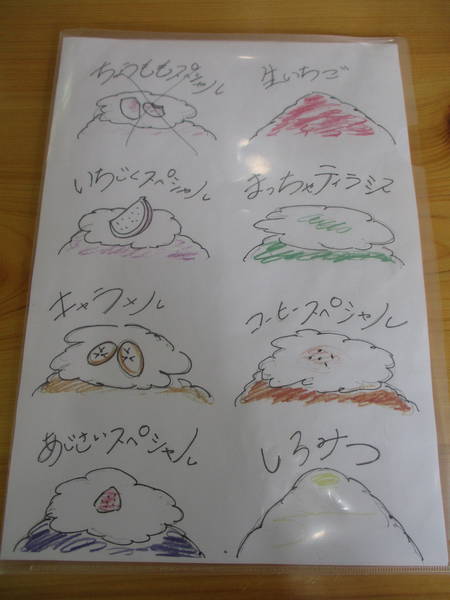 生いちご
いちじくスペシャル
まっちゃティラミス
キャラメル
コーヒースペシャル
あじさいスペシャル
しろみつ